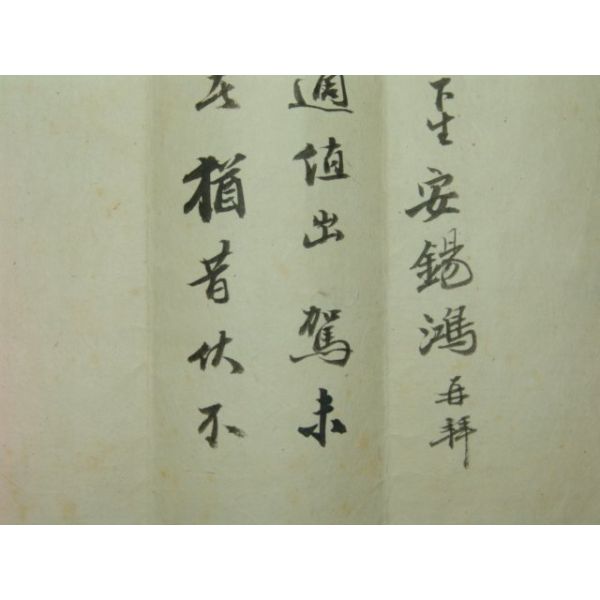 下生安錫鴻再拜
適値出駕未
猶昔伏不